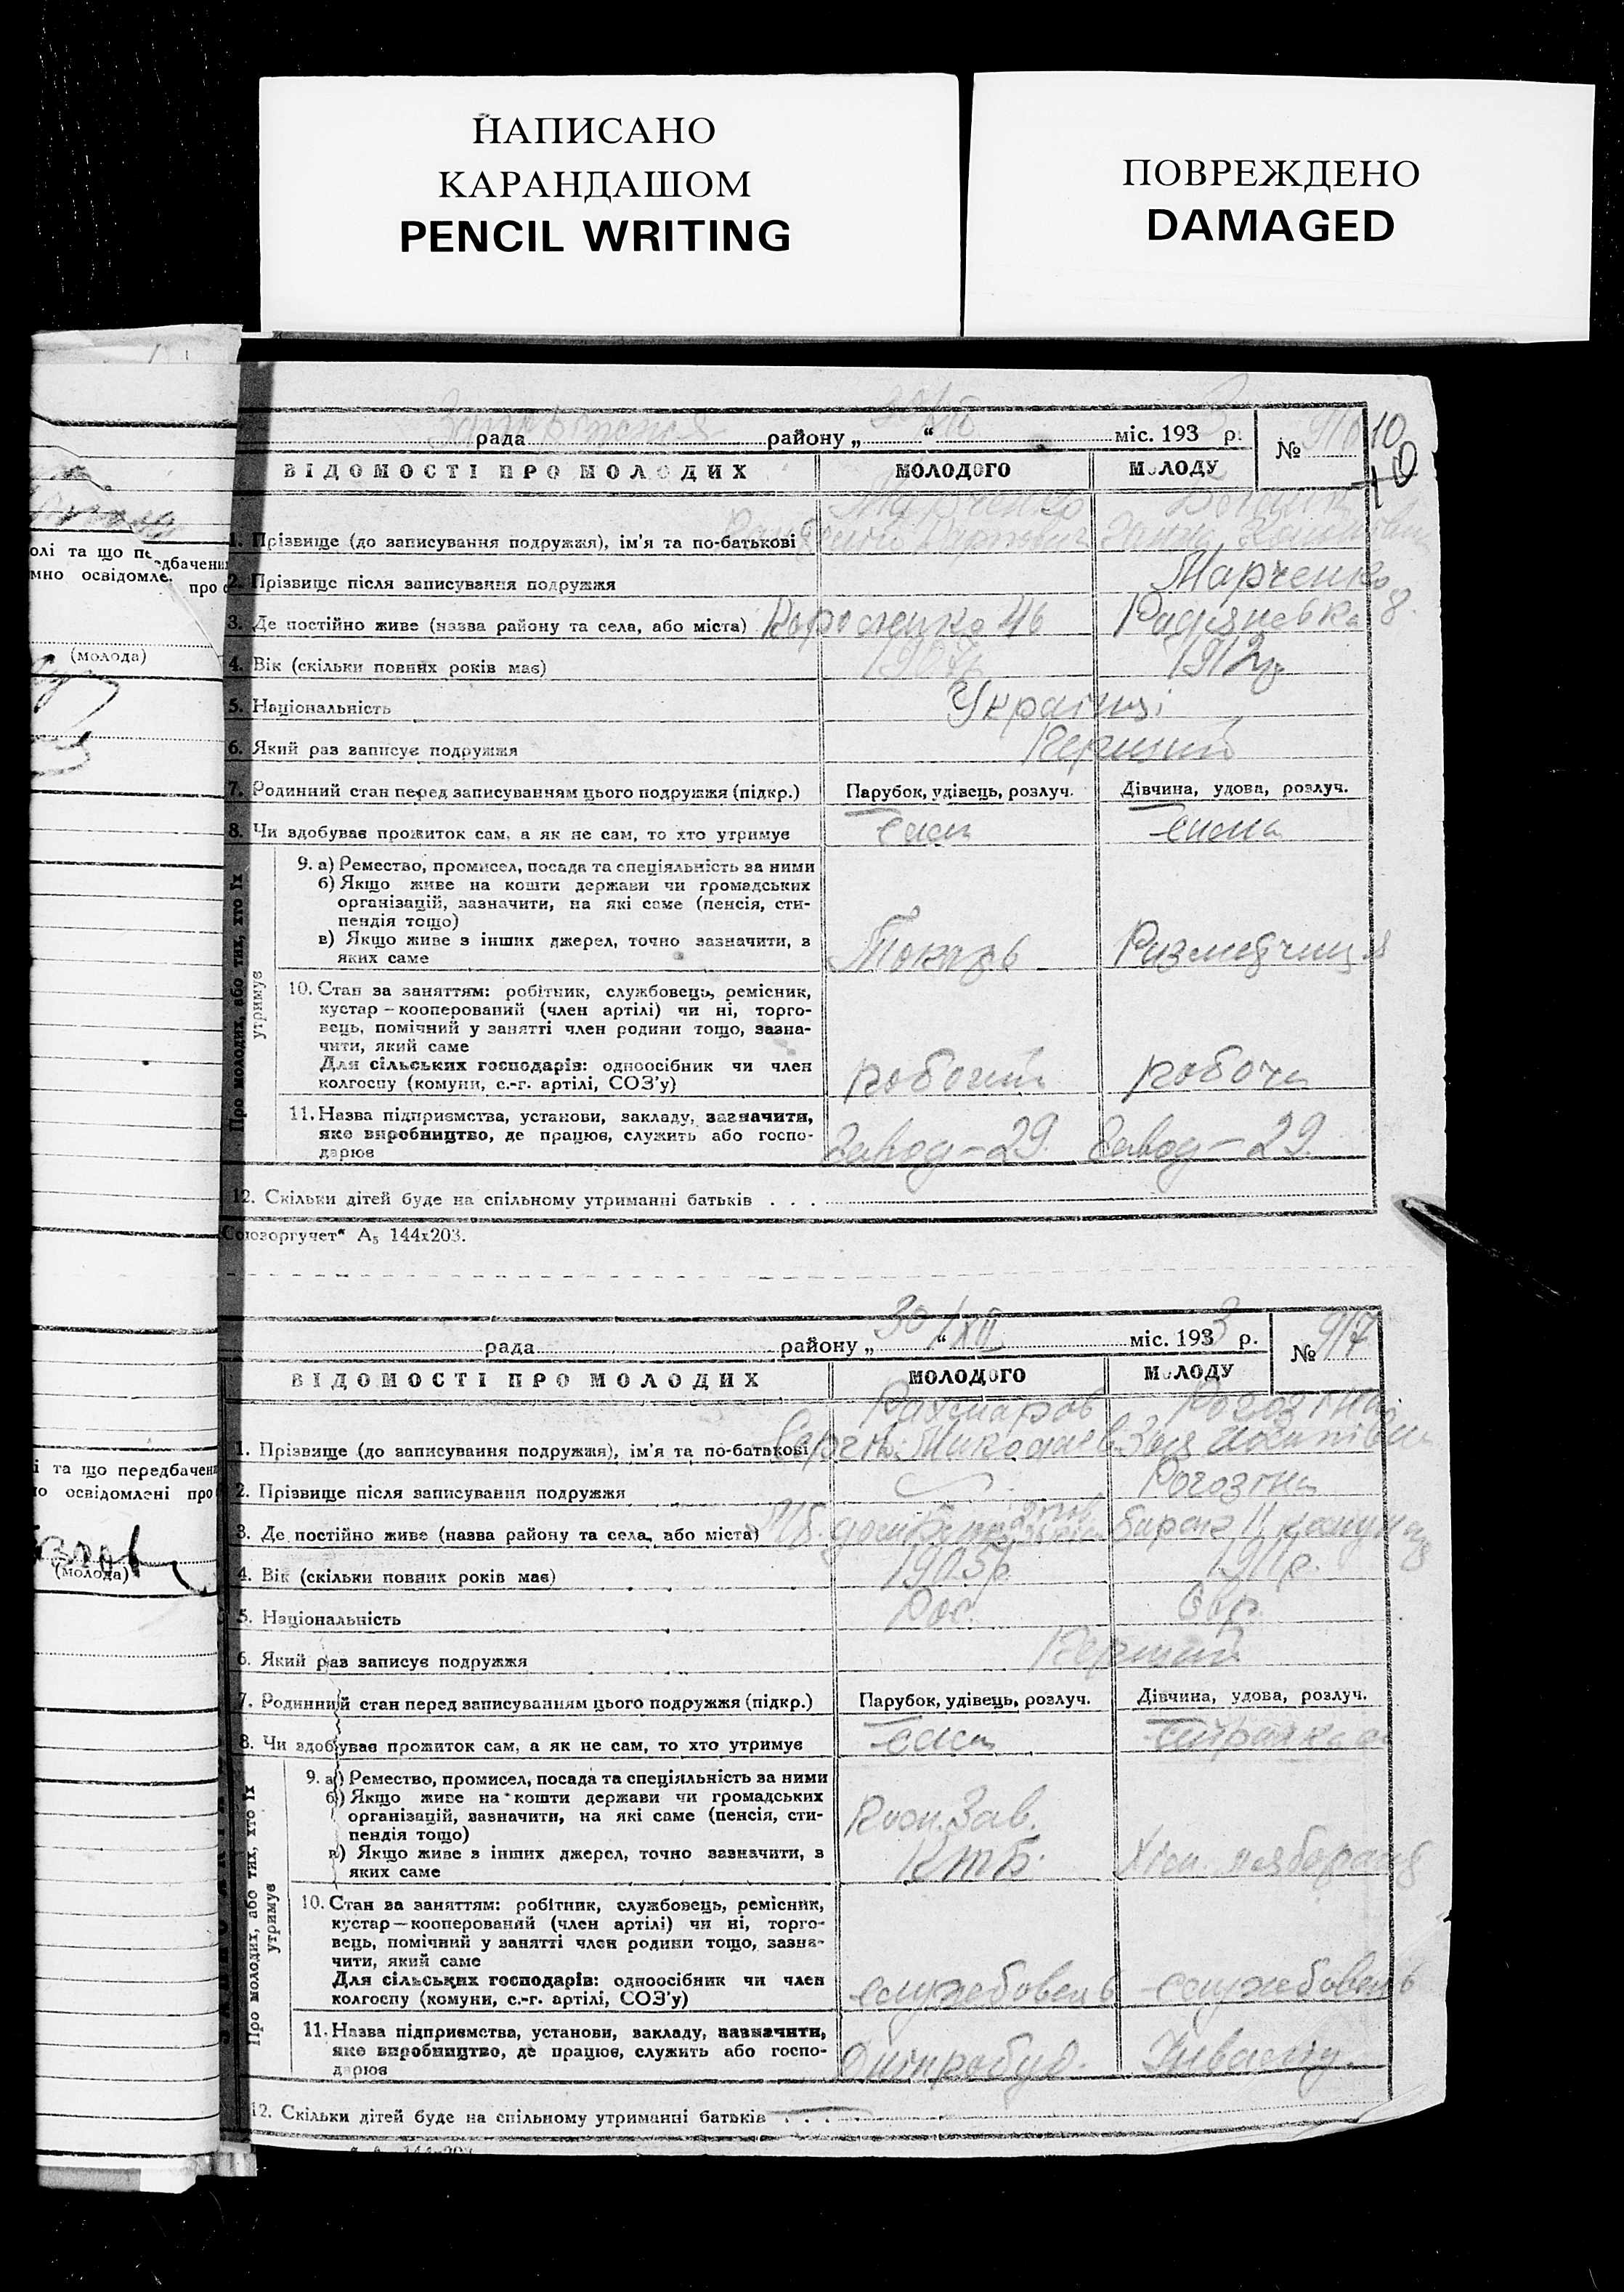 НАПИСАНО
КАРАНДАШОМ
PENCIL WRITING
ПОВРЕЖДЕНО
DAMAGED
рада району „ 30/XII “ міс. 193 3 р. № 916
10
10
ВІДОМОСТІ ПРО МОЛОДИХ МОЛОДОГО МОЛОДУ
Марченко
1. Прізвище (до записування подружжя), ім'я та по-батькові
2. Прізвище після записування подружжя Марченко
3. Де постійно живе (назва району та села, або міста) Короленко 46 Радянська 8.
4. Вік (скільки повних років має) 1907р 1912р
5. Національність Українці
6. Який раз записує подружжя Перший
7. Родинний стан перед записуванням цього подружжя (підкр.) Парубок, удівець, розлуч. Дівчина, удова, розлуч.
8. Чи здобуває прожиток сам, а як не сам, то хто утримує сам сама
Про молодих, або тих, хто їх утримує
9. а) Ремество, промисел, посада та спеціяльність за ними
б) Якщо живе на кошти держави чи громадських
організацій, зазначити, на які саме (пенсія, сти-
пендія тощо)
в) Якщо живе з інших джерел, точно зазначити, з
яких саме
Токарь Розмітчиця
10. Стан за заняттям: робітник, службовець, ремісник,
кустар – кооперований (член артілі) чи ні, торго-
вець, помічний у занятті член родини тощо, зазна-
чити, який саме
Для сільських господарів: одноосібник чи член
колгоспу (комуни, с.-г. артілі, СОЗ'у)
робочий робоча
11. Назва підприємства, установи, закладу, зазначити,
яке виробництво, де працює, служить або госпо-
дарює
Завод – 29. Завод – 29.
12. Скільки дітей буде на спільному утриманні батьків . . .
Союзоргучет“ А₅ 144х203.
рада району „ 30/XII “ міс. 193 3 р. № 917
ВІДОМОСТІ ПРО МОЛОДИХ МОЛОДОГО МОЛОДУ
Рогозіна
1. Прізвище (до записування подружжя), ім'я та по-батькові Сергій Николаев. Зоя
2. Прізвище після записування подружжя Рогозіна
3. Де постійно живе (назва району та села, або міста) барак 11
4. Вік (скільки повних років має) 1905р. 1911р.
5. Національність Рос. Євр.
6. Який раз записує подружжя Перший
7. Родинний стан перед записуванням цього подружжя (підкр.) Парубок, удівець, розлуч. Дівчина, удова, розлуч.
8. Чи здобуває прожиток сам, а як не сам, то хто утримує сам
Про молодих, або тих, хто їх утримує
9. а) Ремество, промисел, посада та спеціяльність за ними
б) Якщо живе на кошти держави чи громадських
організацій, зазначити, на які саме (пенсія, сти-
пендія тощо)
в) Якщо живе з інших джерел, точно зазначити, з
яких саме
Зав.
10. Стан за заняттям: робітник, службовець, ремісник,
кустар — кооперований (член артілі) чи ні, торго-
вець, помічний у занятті член родини тощо, зазна-
чити, який саме
Для сільських господарів: одноосібник чи член
колгоспу (комуни, с.-г. артілі, СОЗ'у)
службовець службовець
11. Назва підприємства, установи, закладу, зазначити,
яке виробництво, де працює, служить або госпо-
дарює
Дніпробуд.
12. Скільки дітей буде на спільному утриманні батьків . . .
олі та що пе
редбачени
мно освідомле
про
(молода)
і та що передбачен
о освідомлені про
(молода)